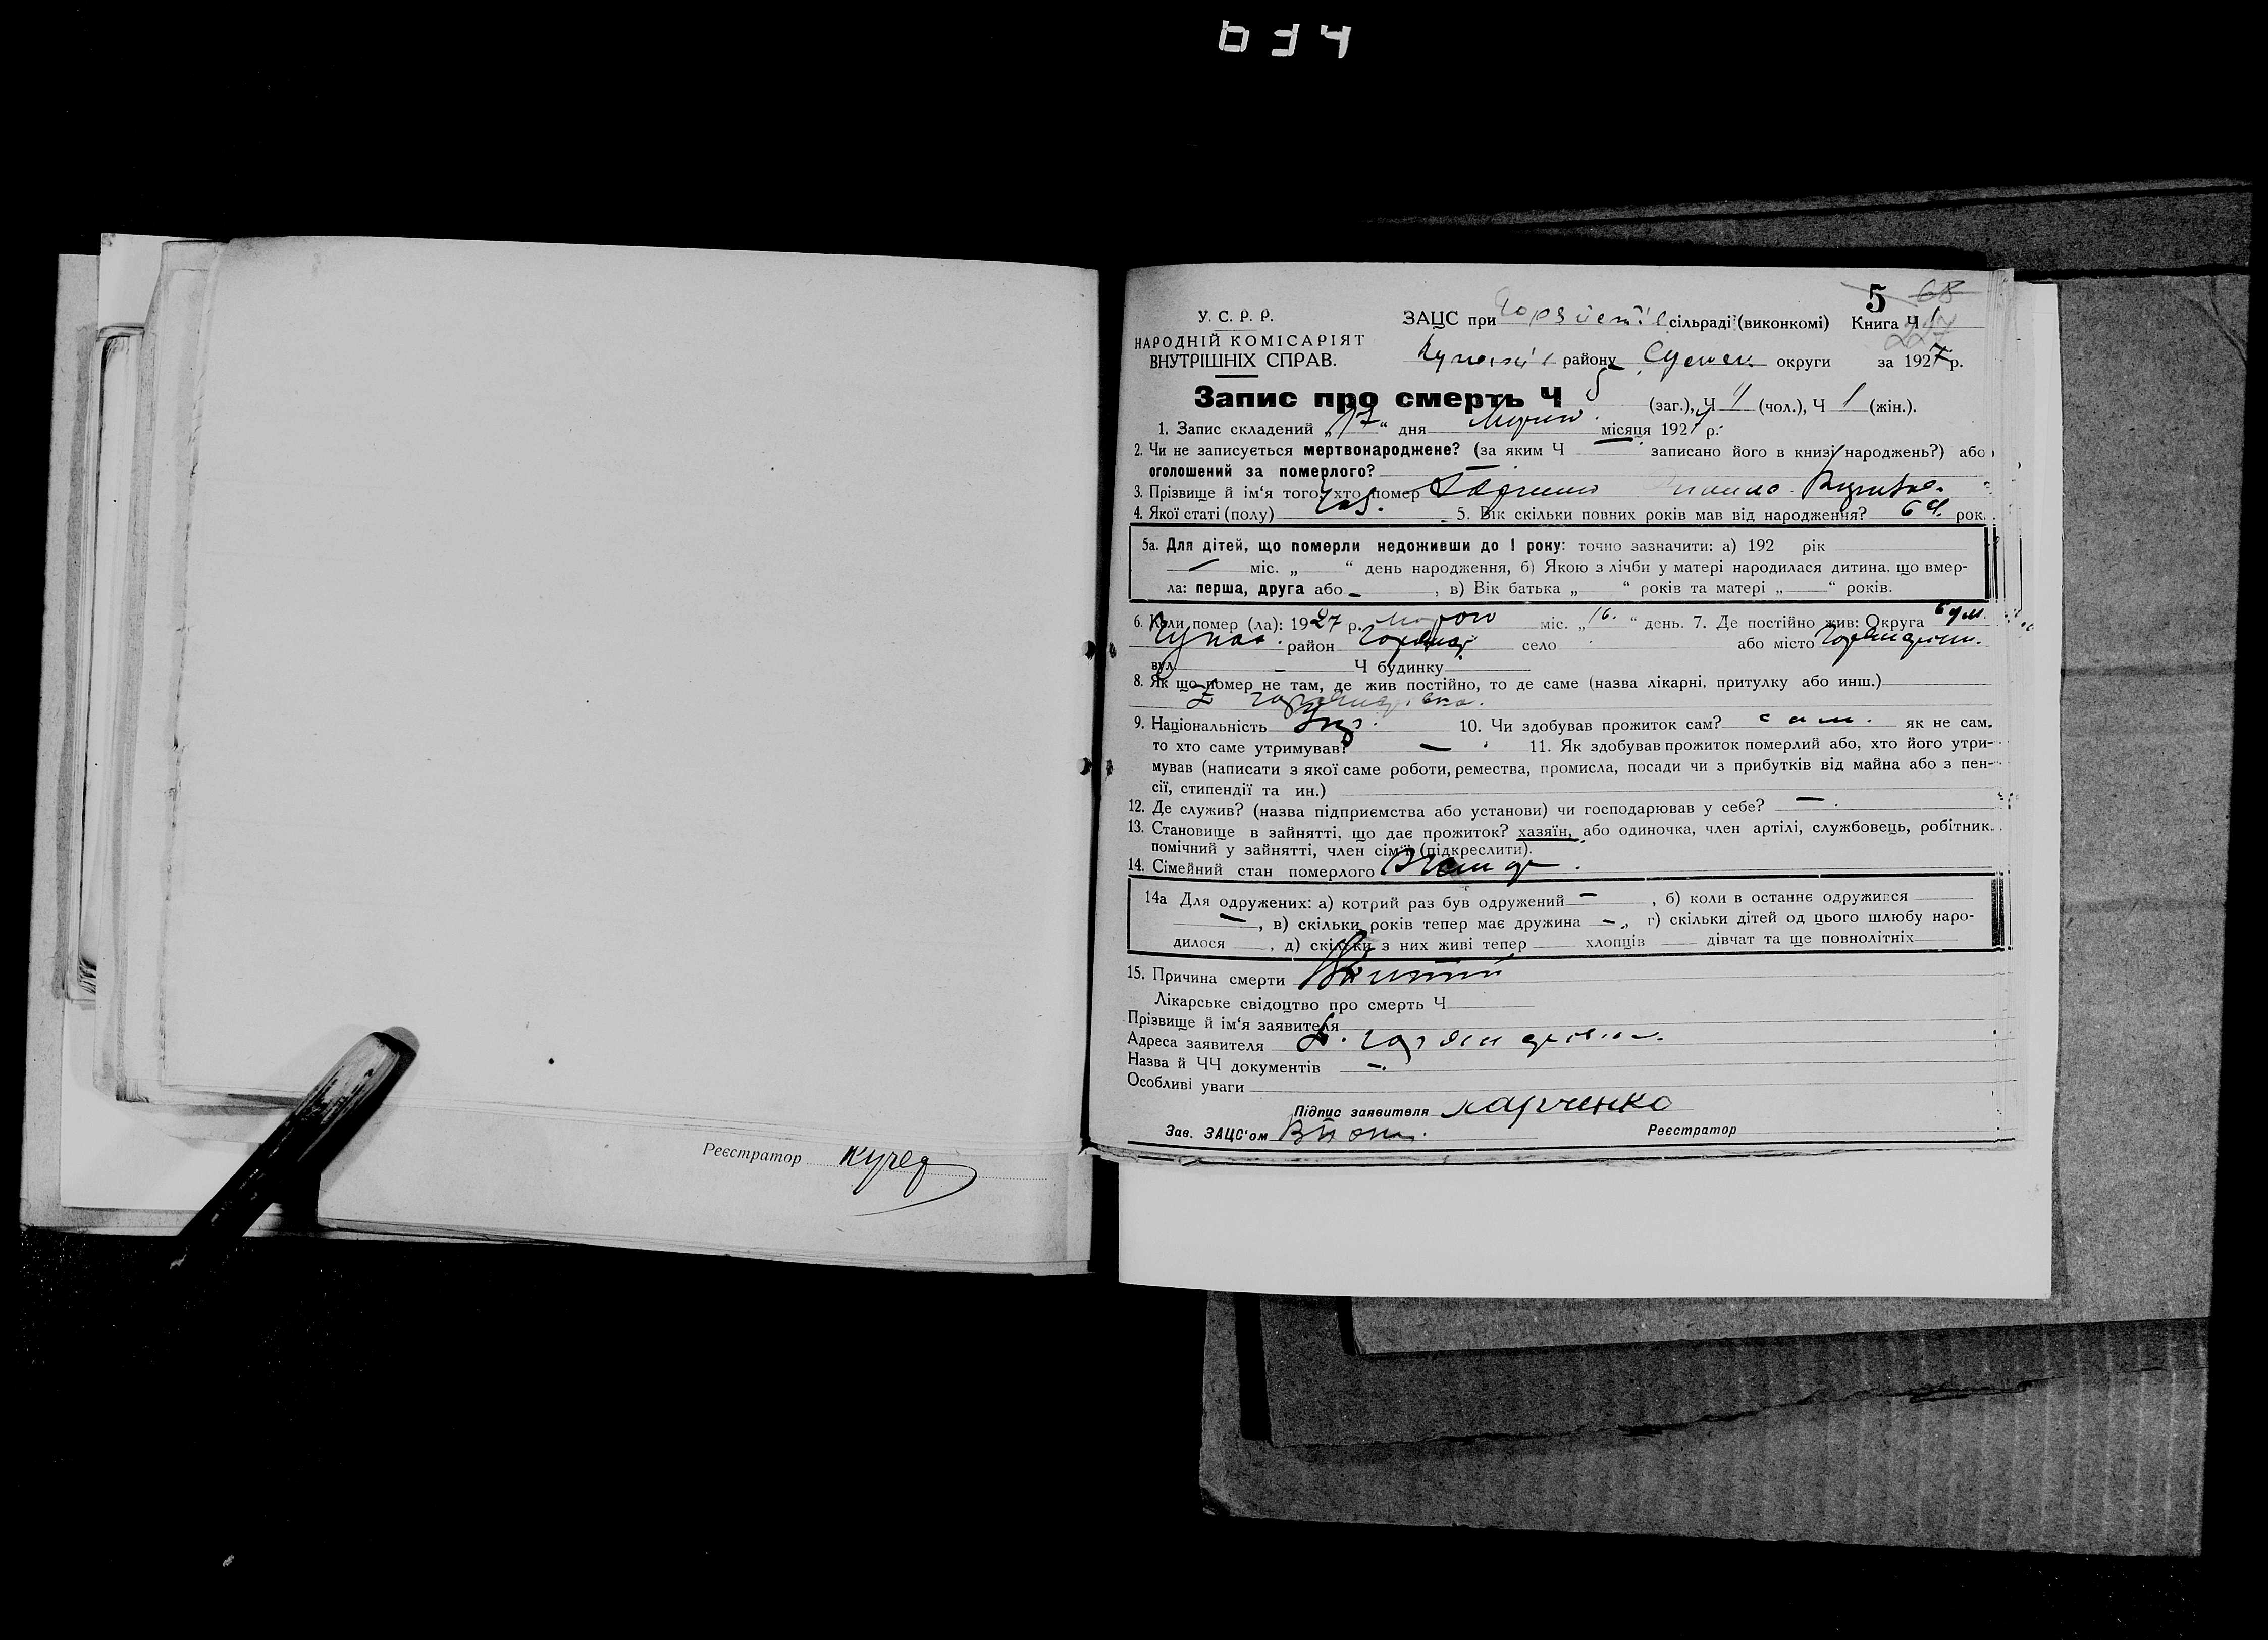 034
Реєстратор Кучер
5 68
227
У. С. Р. Р.
НАРОДНІЙ КОМІСАРІЯТ
ВНУТРІШНІХ СПРАВ.
ЗАЦС при сільраді (виконкомі) Книга Ч 1
району Сумськ округи за 1927 р.
Запис про смерть Ч 5 (заг.), Ч 4 (чол.), Ч 1 (жін.).
1. Запис складений „17“ дня Марта місяця 1927 р.
2. Чи не записується мертвонароджене? (за яким Ч — записано його в книзі народжень?) або
оголошений за померлого? —
3. Прізвище й ім‘я того, хто помер
4. Якої статі (полу) Чол. 5. Вік скільки повних років мав від народження? 64 рок.
5а. Для дітей, що померли недоживши до 1 року: точно зазначити: а) 192 рік
— міс. „ “ день народження, б) Якою з лічби у матері народилася дитина, що вмер-
ла: перша, друга або — , в) Вік батька „ “ років та матері „ “ років.
6. Коли помер (ла): 1927 р. міс. „16.“ день. 7. Де постійно жив: Округа Сум.
район село або місто
вул. — Ч будинку
8. Як що помер не там, де жив постійно, то де саме (назва лікарні, притулку або инш.)
9. Національність Укр. 10. Чи здобував прожиток сам? сам. як не сам.
то хто саме утримував? — 11. Як здобував прожиток померлий або, хто його утри-
мував (написати з якої саме роботи, ремества, промисла, посади чи з прибутків від майна або з пен-
сії, стипендії та ин.)
12. Де служив? (назва підприємства або установи) чи господарював у себе? —
13. Становище в зайнятті, що дає прожиток? хазяїн, або одиночка, член артілі, службовець, робітник.
помічний у зайнятті, член сім‘ї (підкреслити).
14. Сімейний стан померлого
14а Для одружених: а) котрий раз був одружений — , б) коли в останнє одружився
— , в) скільки років тепер має дружина — „ г) скільки дітей од цього шлюбу наро-
дилося , д) скільки з них живі тепер хлопців дівчат та ще повнолітніх
15. Причина смерти
Лікарське свідоцтво про смерть Ч
Прізвище й ім‘я заявителя
Адреса заявителя
Назва й ЧЧ документів —
Особливі уваги
Підпис заявителя Харченко
Зав. ЗАЦС‘ом Реєстратор